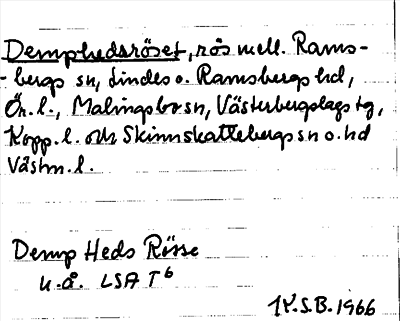 Demphedsröset, rös mell. Rams-
-bergs sn, Lindes o. Ramsbergs hd,
Ör. l., Malingsbo sn, Västerbergslags tg,
Kopp. l. och Skinnskattebergs sn o. hd
Västm. l.
Demp Heds Rösse
u.å. LSA T6
K.S.B. 1966